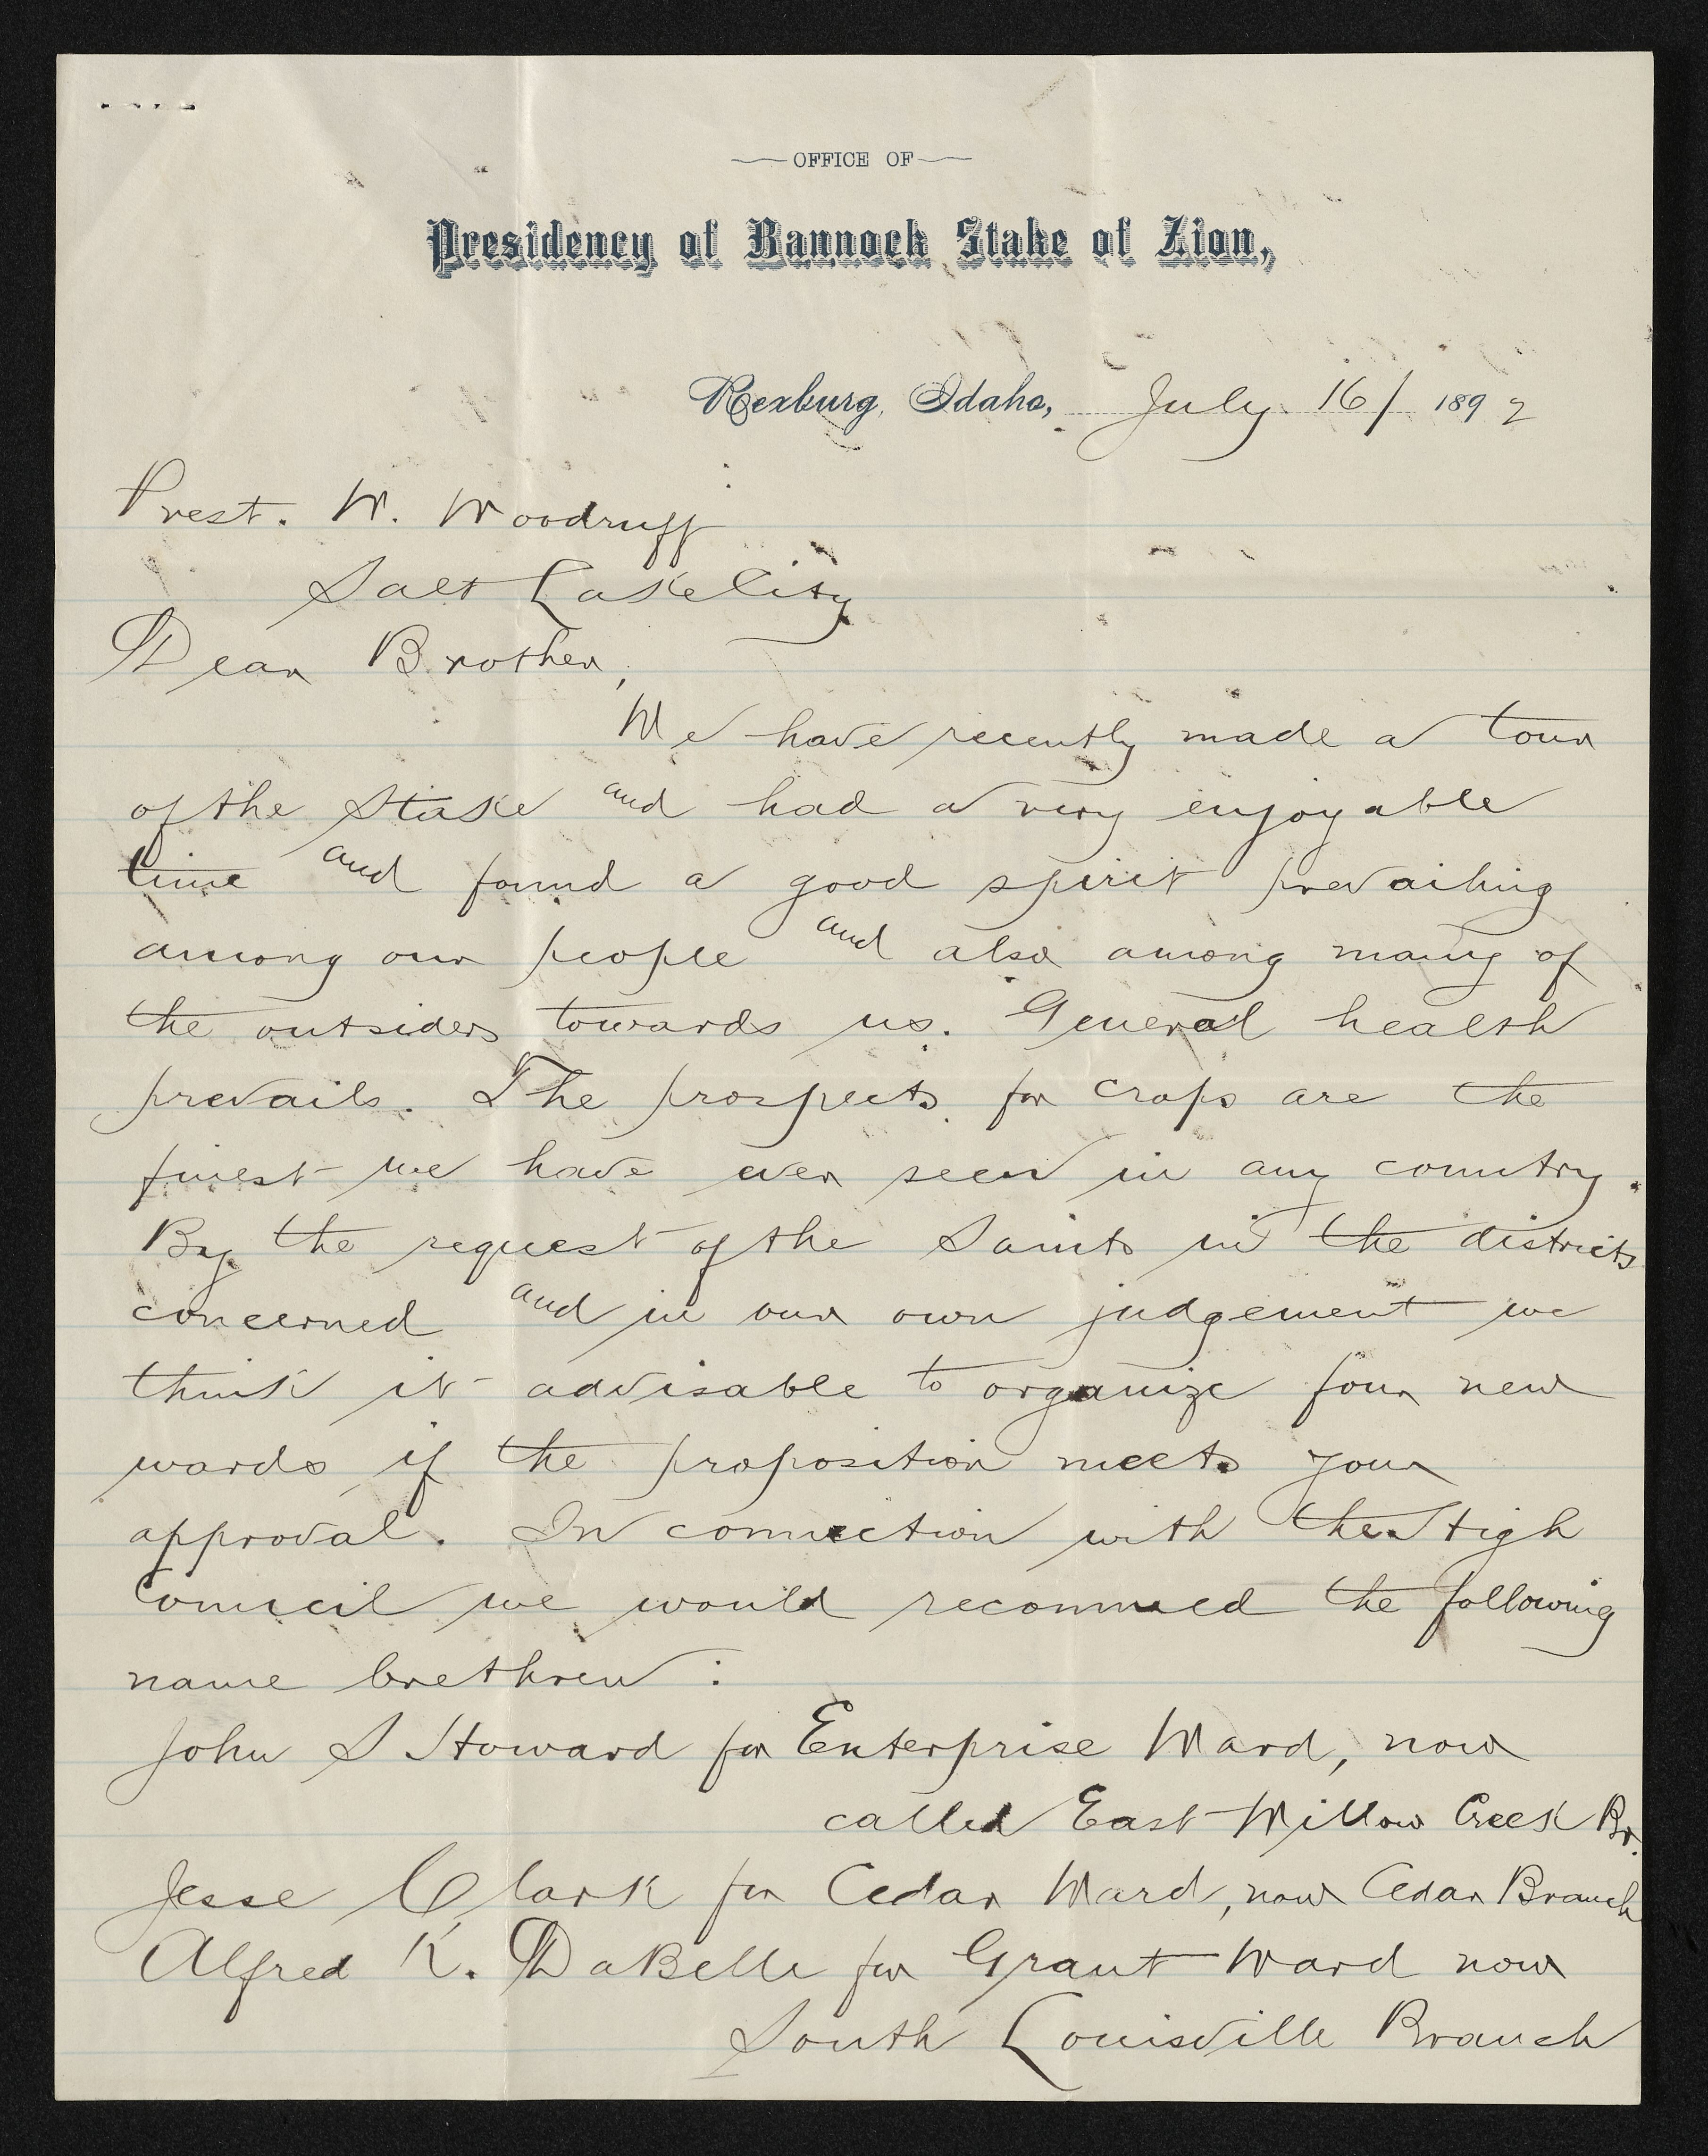 OFFICE OF
Presidency of Bannock Stake of Zion,
Rexburg, Idaho, July 16/ 1892
Prest. W. Woodruff
Salt Lake City
Dear Brother,
We have recently made a tour
of the Stake and had a very enjoyable
time and found a good spirit prevailing
among our people and also among many of
the outsiders towards us. General health
prevails. The prospects for crops are the
finest we have ever seen in any country.
By the request of the Saints in the districts
concerned and in our own judgement we
think it advisable to organize four new
wards if the proposition meets your
approval. In connection with the High
Council we would recommed the following
name brethren:
John S Howard for Enterprise Ward, now
called East Willow Creek Br.
Jesse Clark for Cedar Ward, now Cedar Branch
Alfred K. DaBelle for Grant Ward now
South Louisville Branch